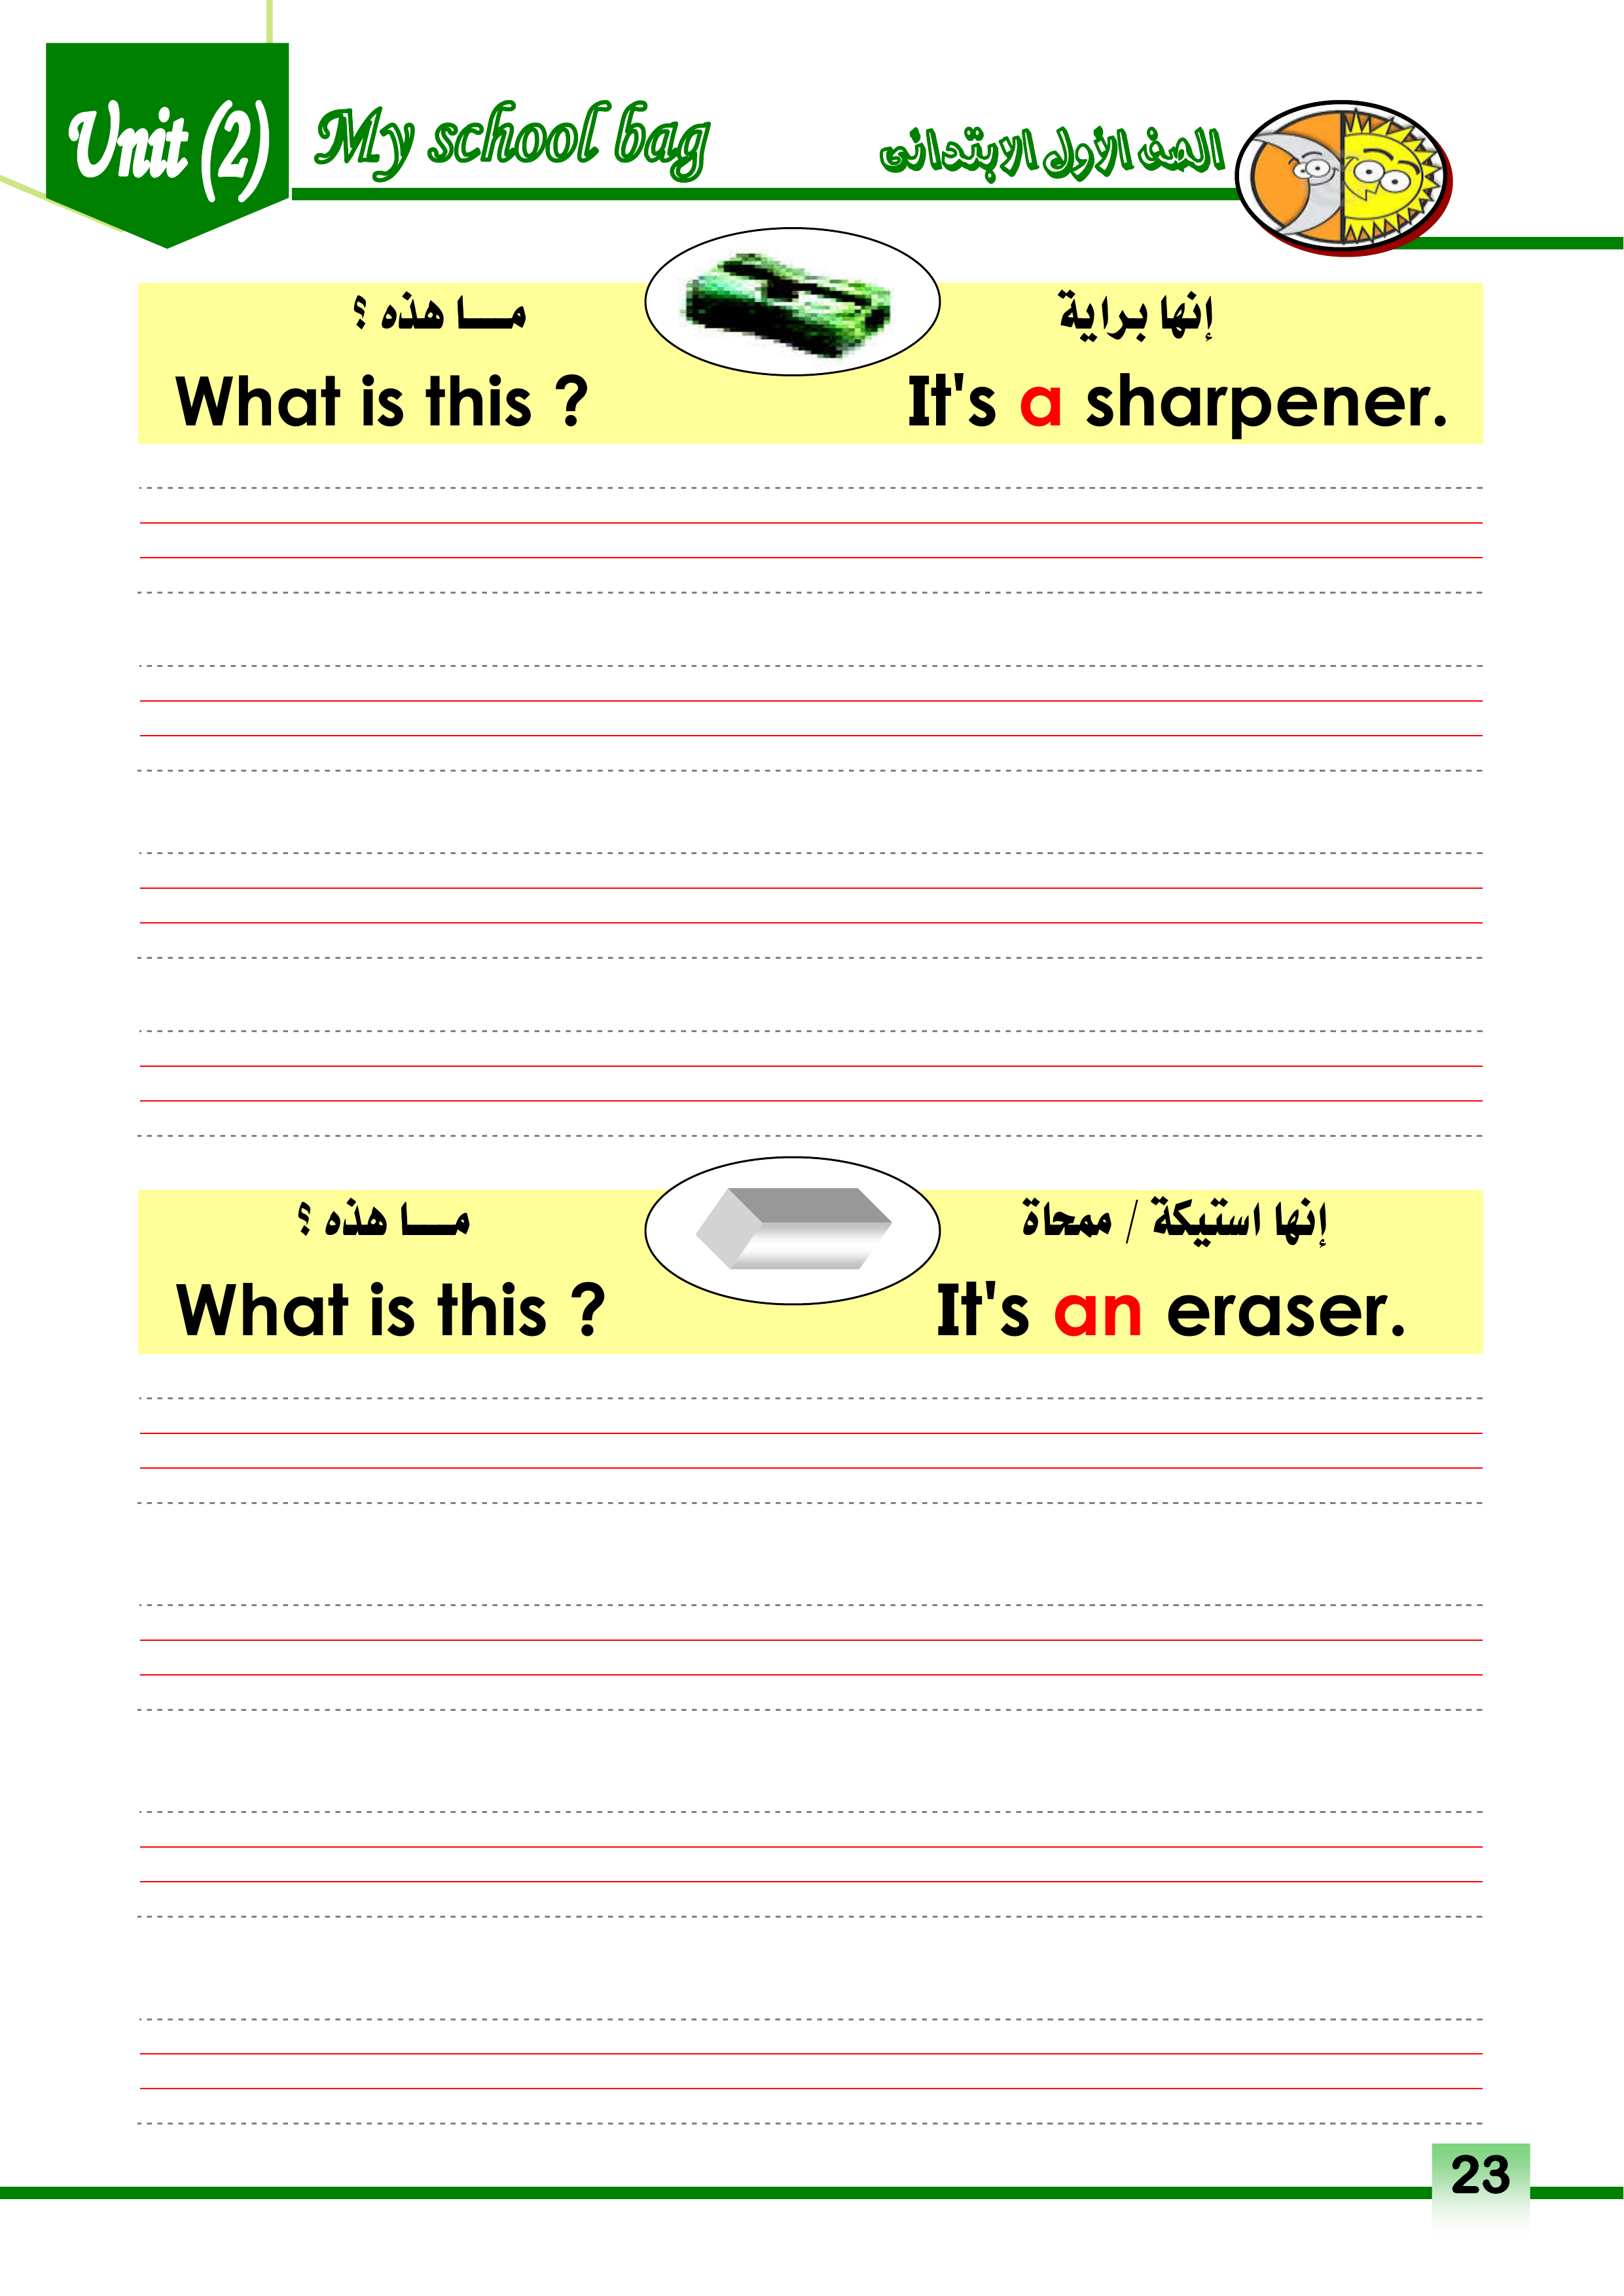 Unit (2)
My school bag
الصف الأول الابتدائى
مـــا هذه ؟
إنها براية
What is this ?
It's a sharpener.
مـــا هذه ؟
إنها استيكة / ممحاة
What is this ?
It's an eraser.
23